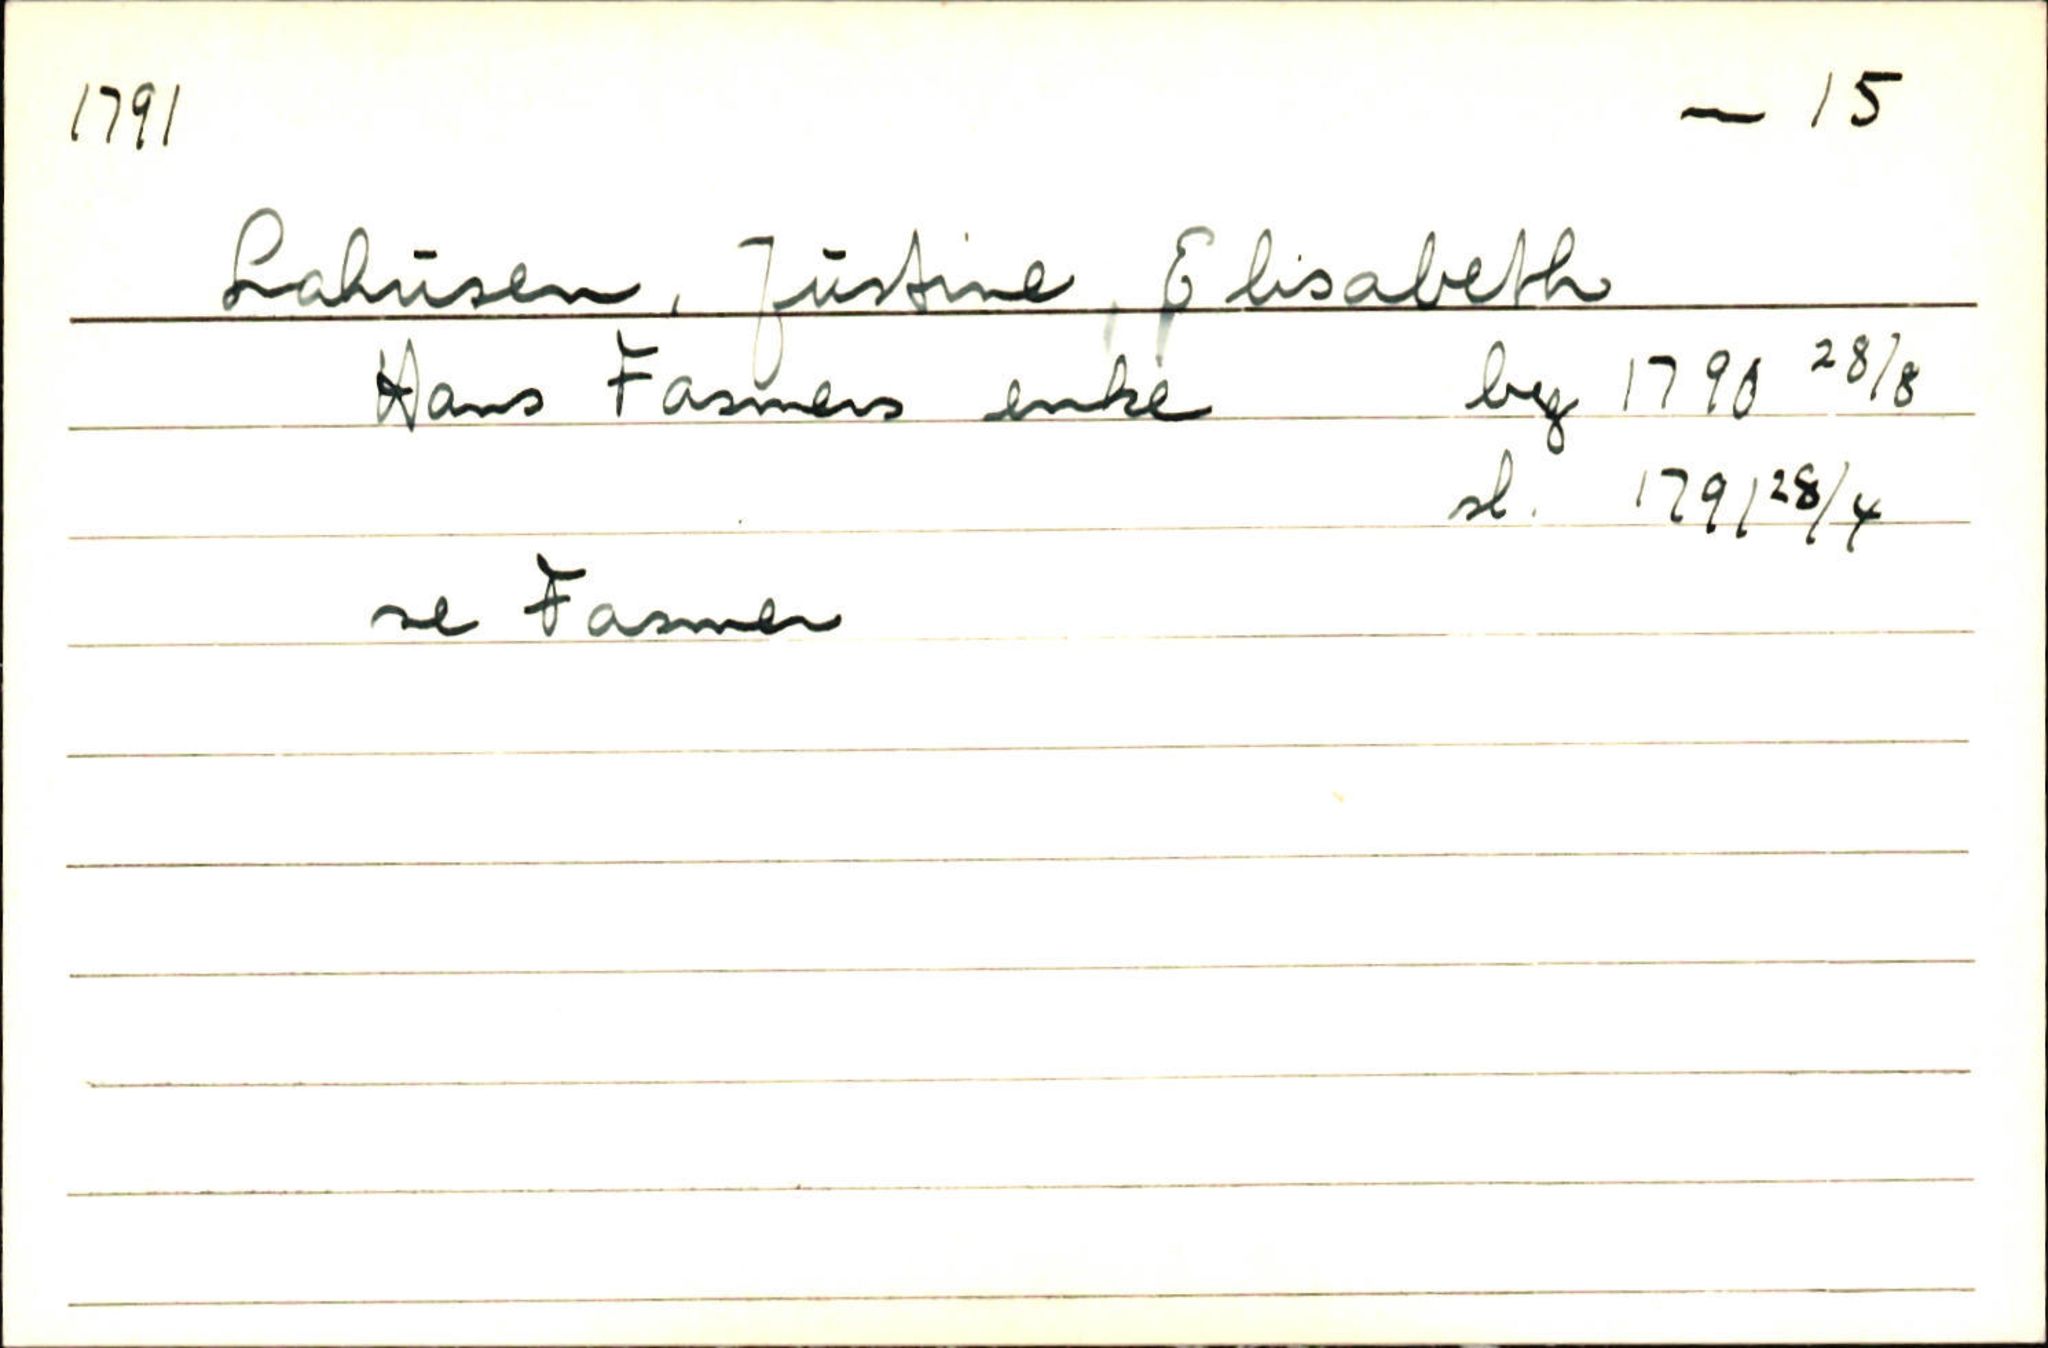 1791 — 15
Lahusen, Justine, Elisabeth
Hans Fasmers enke beg 1790 28/8
sl. 1791 28/4
se Fasmer